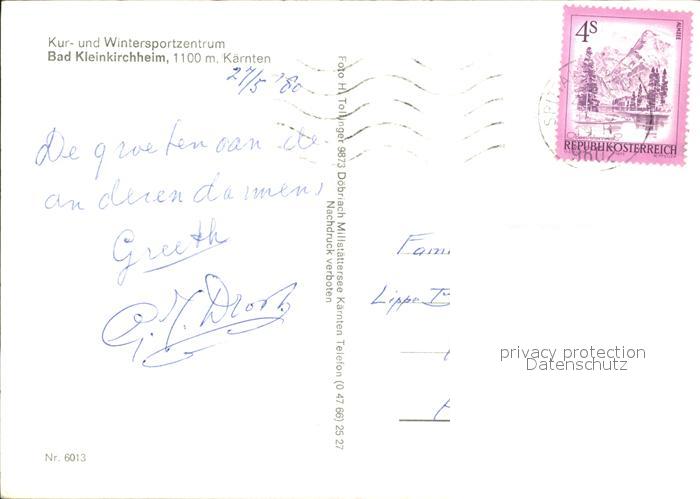 Kur- und Wintersportzentrum
Bad Kleinkirchheim, 1100 m, Kärnten
27/5 '80
De groeten aan de
anderen dammens
Greeth
Foto H. Tollinger 9873 Döbriach Millstättersee Kärnten Telefon (0 47 66) 25 27
Nachdruck verboten
4S
ALMSEE
REPUBLIK ÖSTERREICH
Fami
Lippe
privacy protection
Datenschutz
Nr. 6013